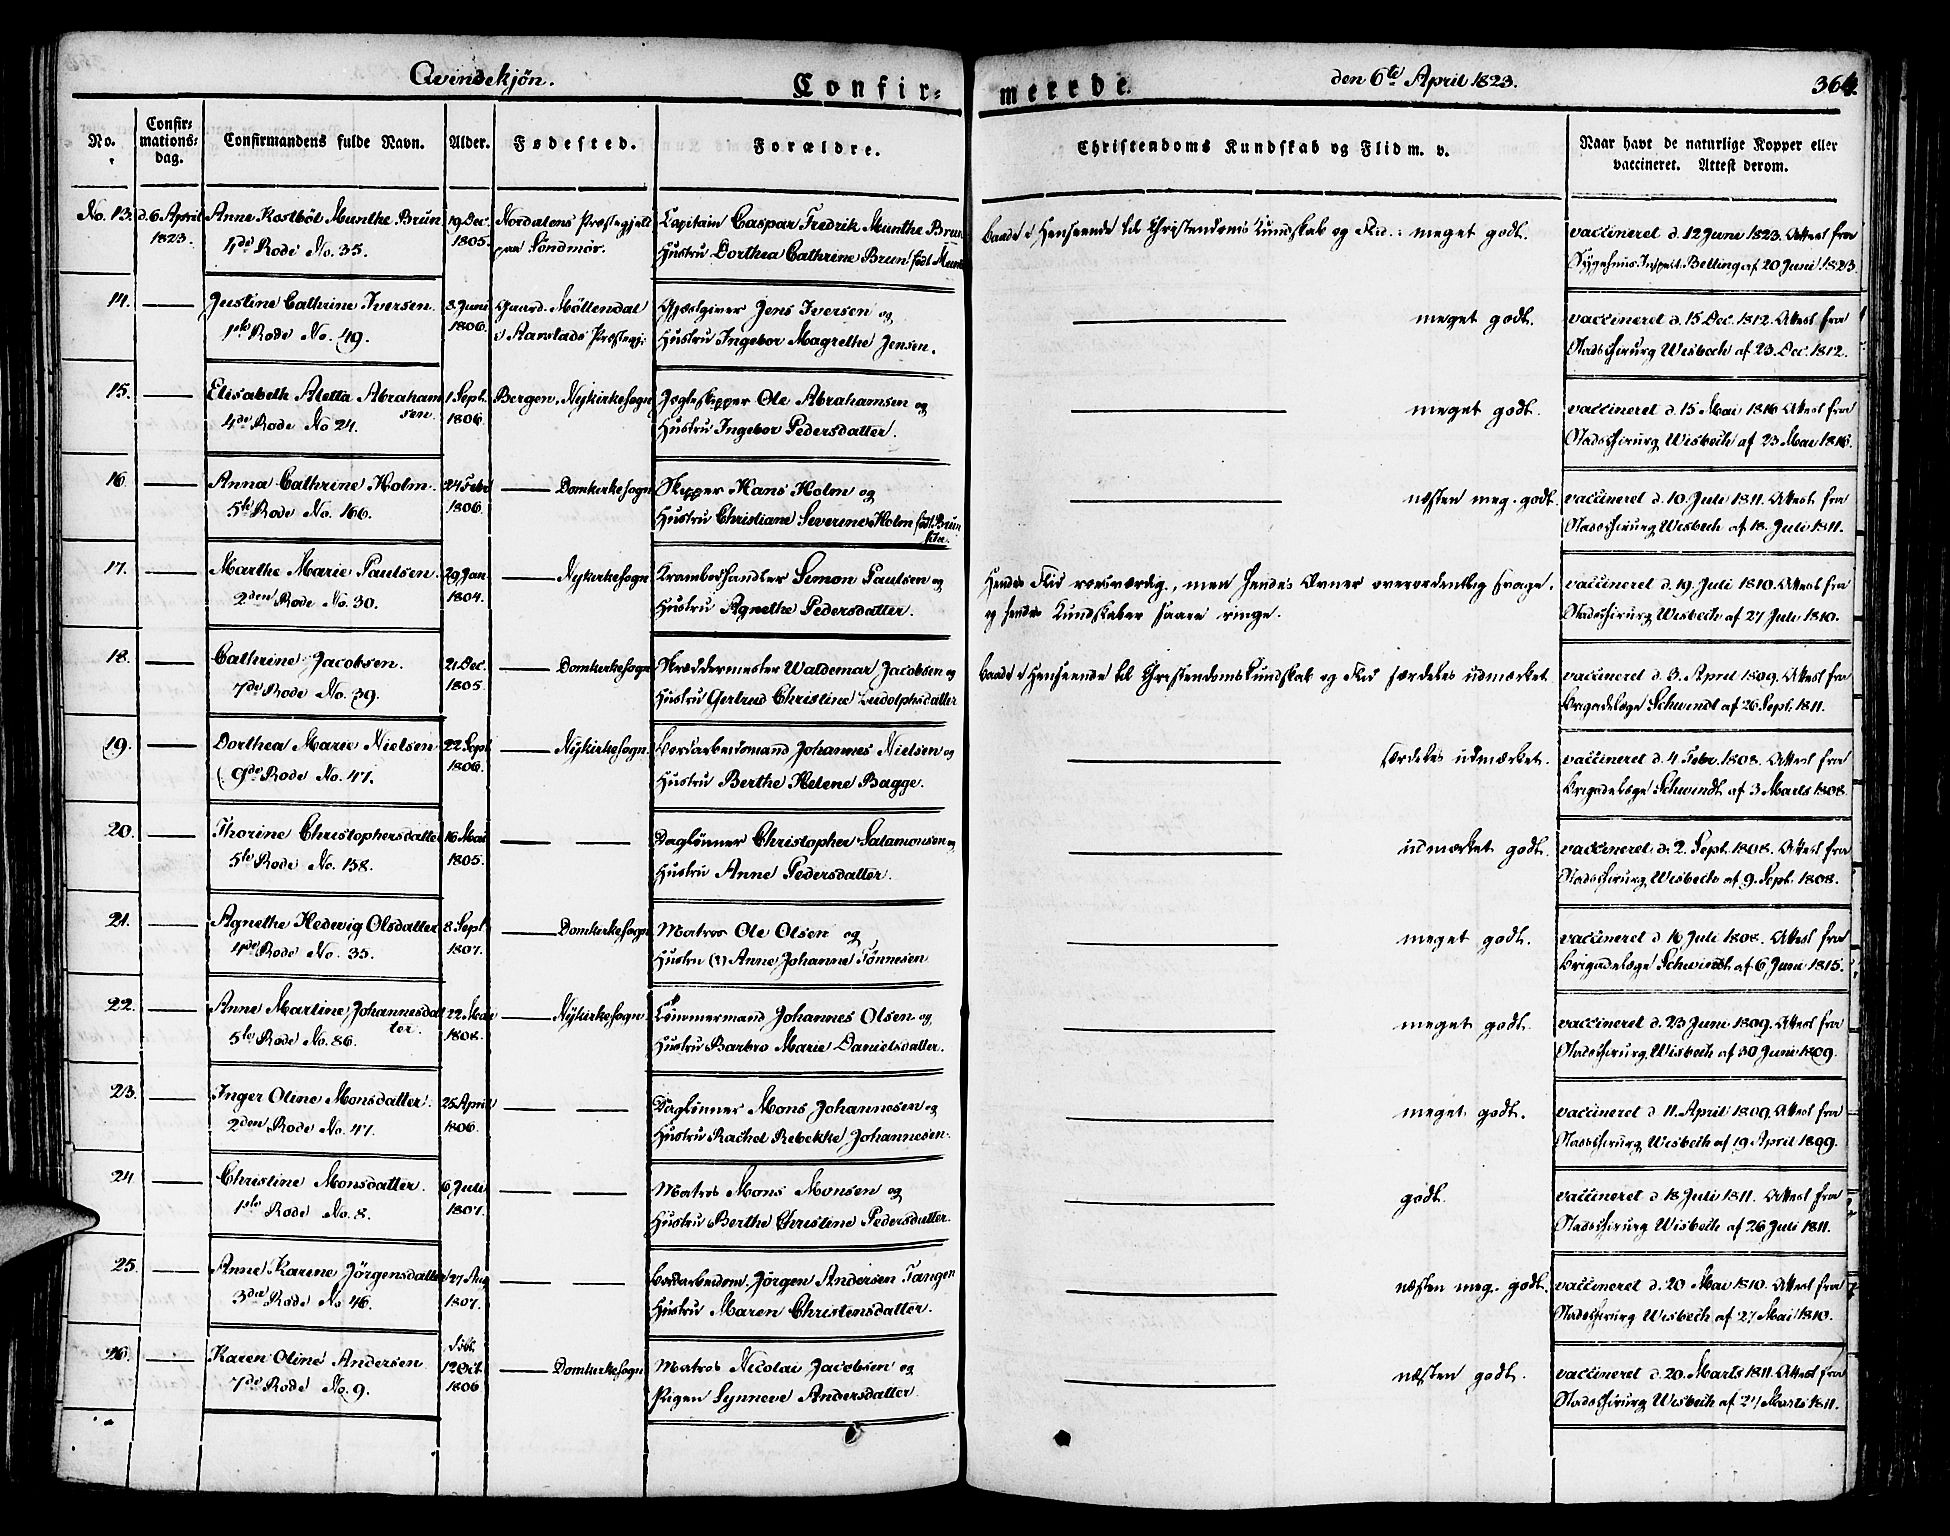 Qvindekjøn.
Confir-
meerde.
den 6te April 1823.
364.
No.
Confir-
mations-
dag.
Confirmandens fulde Navn.
Alder.
Fødested.
Forældre.
Christendoms Kundskab og Flid m. v.
Naar havt de naturlige Kopper eller
vaccineret. Attest derom.
No. 13. d. 6 April Anne Kostböl Munthe Brun 19 Dec. Nordalens Præstegjeld Capitain Caspar Fredrik Munthe Brun Baade i Henseende til Christendoms Kundskab og Flid : meget godt. vaccineret d. 12 Juni 1823. Attest fra
1823. 4de Rode No. 35. 1805. paa Söndmör. Hustru Dorthea Cathrine Brun født Sygehuus Inspect. Belling af 20 Juni 1823.
14. Justine Cathrine Iversen. 3. Juni Gaard. Möllendal Gjæstgiver Jens Iversen og meget godt. vaccineret d. 15 Dec. 1812. Attest fra
1ste Rode No. 49. 1806. i Aarstads Præstegj: Hustru Ingebor Magrethe Jensen. Stadschirurg Wisbech af 23. Dec. 1812.
15. Elisabeth Aletta Abraham 1 Sept. Bergen, Nykirkesogn Jegteskipper Ole Abrahamsen og meget godt. vaccineret d. 15 Mai 1816 Attest fra
sen.
4de Rode No 24. 1806. Hustru Ingebor Pedersdatter. Stadschirurg Wisbech af 23 Mai 1816.
16. Anna Cathrine Holm. 24 Febr Domkirkesogn Skipper Hans Holm og næsten meg. godt. vaccineret d. 10. Juli 1811. Attest fra
5te Rode No. 166. 1806. Hustru Christiane Severine Holm født Stadschirurg Wisbech af 18. Juli 1811.
17. Marthe Marie Paulsen. 29 Jan. Nykirkesogn Kramboehandler Simon Paulsen og Hendes Flid roesværdig, men hendes Evner overordentlig svage, vaccineret d. 19. Juli 1810. Attest fra
2den Rode No. 30. 1804. Hustru Agnethe Pedersdatter. og hendes Kundskaber saare ringe. Stadschirurg Wisbech af 27 Juli 1810.
18. Cathrine Jacobsen. 21 Dec. Domkirkesogn Skræddermester Waldemar Jacobsen og Baade i Henseende til Christendomskundskab og Flid særdeles udmærket vaccineret d. 3. April 1809. Attest fra
7de Rode No. 39. 1805. Hustru Gertrud Christine Ludolphsdatter Brigadelæge Schwindt af 26 Sept. 1811.
19. Dorthea Marie Nielsen 22 Sept Nykirkesogn. Bordarbeidsmand Johannes Nielsen og særdeles udmærket. vaccineret d. 4 Febr. 1808. Attest fra
9de Rode No. 47. 1806. Hustru Berthe Helene Bagge. Brigadelæge Schwindt af 3 Marts 1808.
20. Thorine Christophersdatter 16 Mai Daglönner Christopher Salamonsen og udmærket godt. vaccineret d. 2. Sept. 1808. Attest fra
5te Rode No. 138. 1805. Hustru Anne Pedersdatter. Stadschirurg Wisbech af 9. Sept. 1808.
21. Agnethe Hedewig Olsdatter 8 Sept Domkirkesogn Matros Ole Olsen og meget godt. vaccineret d 16 Juli 1808. Attest fra
4de Rode No. 35. 1807. Hustru (?) Anne Johanne Tönnesen Brigadelæge Schwindt af 6 Juni 1815.
22. Anne Martine Johannesdat 22. Mai Nykirkesogn. Tömmermand Johannes Olsen og meget godt. vaccineret d. 23 Juni 1809. Attest fra
ter.
5te Rode No. 86. 1808. Hustru Barbro Marie Danielsdatter. Stadschirurg Wisbech af 30 Juni 1809.
23. Inger Oline Monsdatter. 25 April Daglönner Mons Johannesen og meget godt. vaccineret d. 11. April 1809. Attest fra
2den Rode No. 47. 1806. Hustru Rachel Rebekke Johannesen. Stadschirurg Wisbech af 19 April 1899.
24 Christine Monsdatter. 6 Juli Matros Mons Monsen og godt. vaccineret d. 18 Juli 1811. Attest fra
1ste Rode No. 8. 1807. Hustru Berthe Christine Pedersdatter. Stadschirurg Wisbech af 26 Juli 1811.
25. Anne Karine Jörgensdatter 27 Aug Bordarbeidsm. Jörgen Andersen Tangen næsten meg. godt. vaccineret d. 20 Mai 1810. Attest fra
3die Rode No 46. 1807. Hustru Maren Christensdatter. Stadschirurg Wisbech af 27 Mai 1810.
26. Karen Oline Andersen 12 Oct. Domkirkesogn Matros Nicolai Jacobsen og næsten godt. vaccineret d. 20. Marts 1811. Attest fra
7de Rode No. 9. 1806 Pigen Synneve Andersdatter Stadschirurg Wisbech af 27 Marts 1811.